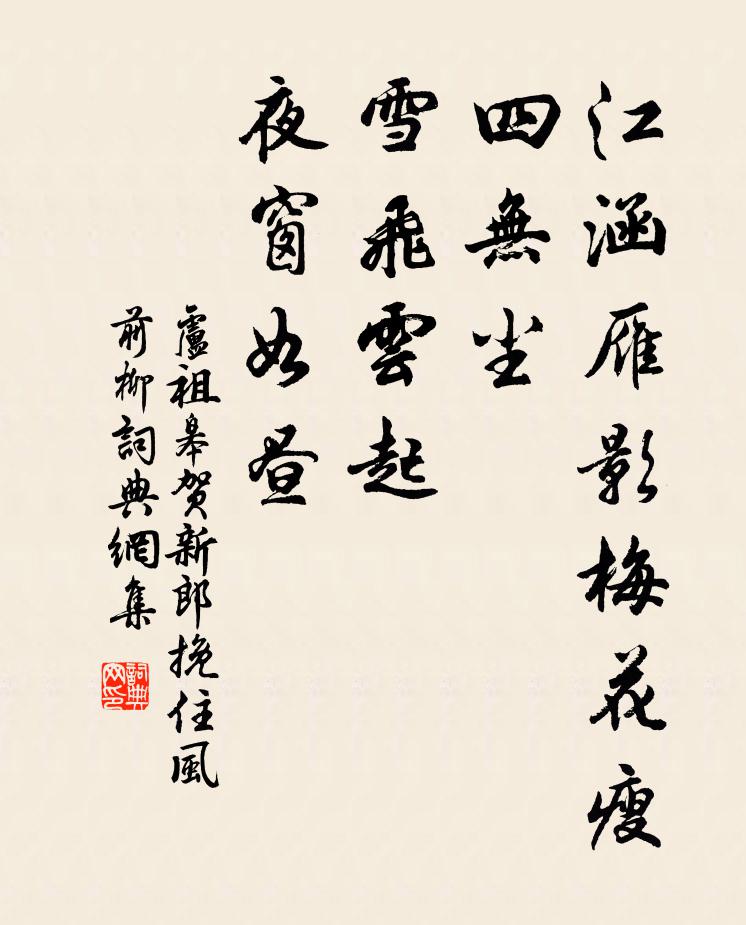 江涵雁影梅花瘦
四無尘
雪飛雲起
夜窗如昼
盧祖皋贺新郎挽住風
前柳詞典網集
詞典网印